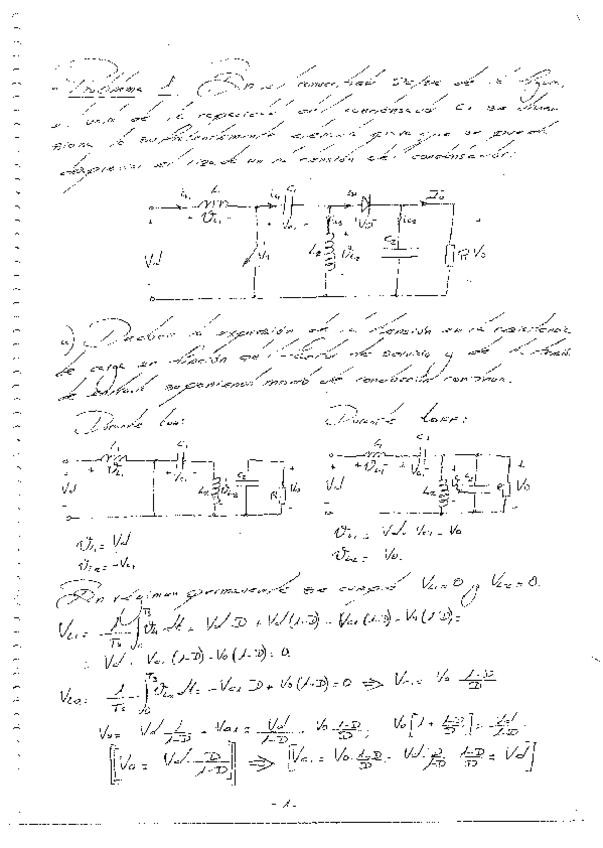 Problema 1. En el convertidor de la figura,
el valor de la capacidad del condensador C1 es
lo suficientemente grande para que se pueda
despreciar el rizado en la tensión del condensador:
iL1 L1 C1 iD Io
+ vL1 - + Vc1 - VD
Vd L2 vL2 C2 R Vo
a) Deducir la expresión de la tensión en la resistencia
de carga en función del de servicio y de la tensión
de entrada suponiendo modo de conducción continua.
Durante ton: Durante toff:
L1 C1 L1 C1
+ vL1 - + Vc1 - + vL1 - + Vc1 -
Vd L2 vL2 C2 R Vo Vd L2 C2 R Vo
vL1 = Vd vL1 = Vd - Vc1 - Vo
vL2 = -Vc1 vL2 = Vo
En régimen permanente se cumple VL1 = 0 y VL2 = 0.
VL1 = 1/Ts ∫0^Ts vL1 dt = Vd D + Vd (1-D) - Vc1 (1-D) - Vo (1-D) =
= Vd - Vc1 (1-D) - Vo (1-D) = 0
VL2 = 1/Ts ∫0^Ts vL2 dt = -Vc1 D + Vo (1-D) = 0 ⇒ Vc1 = Vo (1-D)/D
Vo = Vd 1/(1-D) - Vc1 = Vd/(1-D) - Vo (1-D)/D; Vo [1 + (1-D)/D] = Vd/(1-D)
[Vo = Vd D/(1-D)] ⇒ [Vc1 = Vo (1-D)/D = Vd D/(1-D) (1-D)/D = Vd]
- 1 -